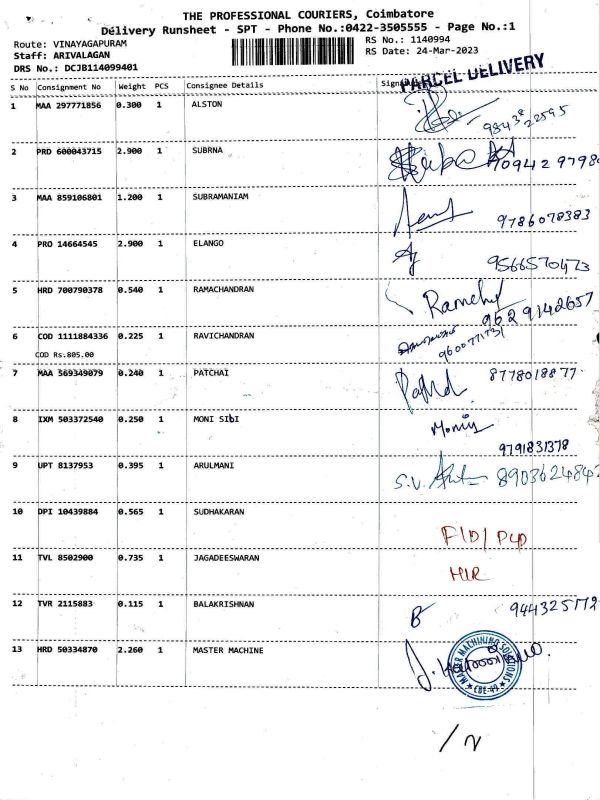 THE PROFESSIONAL COURIERS, Coimbatore
Delivery Runsheet - SPT - Phone No.:0422-3505555 - Page No.:1
Route: VINAYAGAPURAM RS No.: 1140994
Staff: ARIVALAGAN RS Date: 24-Mar-2023
DRS No.: DCJB114099401
PARCEL DELIVERY
S No Consignment No Weight PCS Consignee Details
1 MAA 297771856 0.300 1 ALSTON
2 PRD 600043715 2.900 1 SUBRNA
3 MAA 859106801 1.200 1 SUBRAMANIAM 9786078383
4 PRO 14664545 2.900 1 ELANGO 9566570473
5 HRD 700790378 0.540 1 RAMACHANDRAN 9629142657
6 COD 1111884336 0.225 1 RAVICHANDRAN 9600771731
COD Rs.805.00
7 MAA 369349079 0.240 1 PATCHAI 8778018877
8 IXM 503372540 0.250 1 MONI SIbI 9791831378
9 UPT 8137953 0.395 1 ARULMANI S.V.
10 DPI 10439884 0.565 1 SUDHAKARAN
11 TVL 8502900 0.735 1 JAGADEESWARAN
12 TVR 2115883 0.115 1 BALAKRISHNAN
13 HRD 50334870 2.260 1 MASTER MACHINE
MACHINING SOLUTIONS
CBE-49